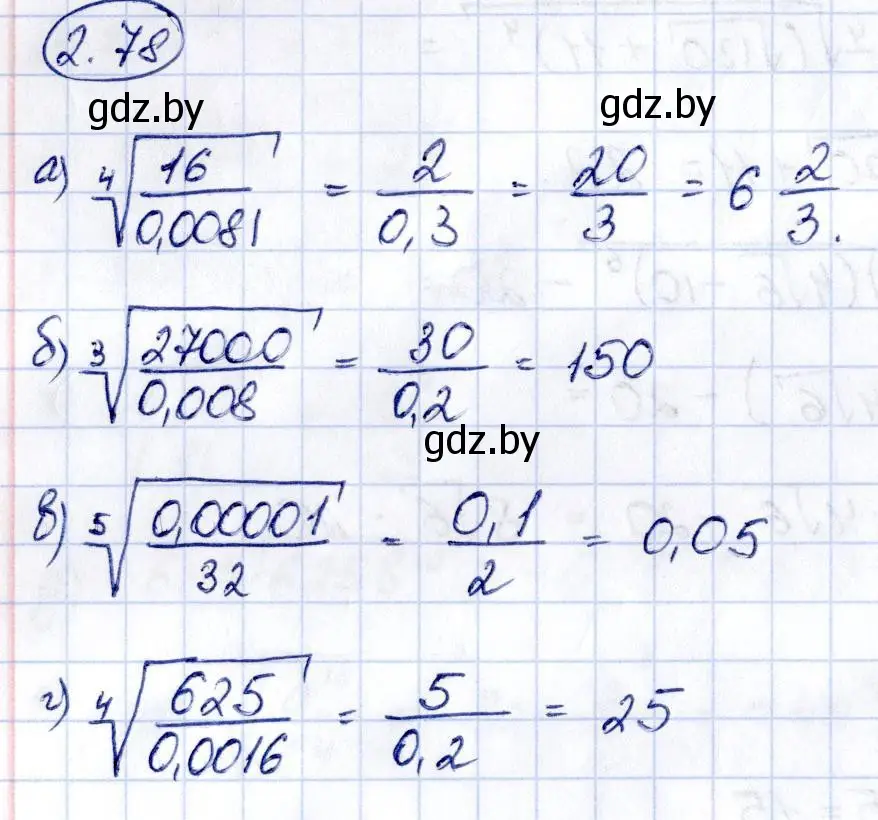 2.78
gdz.by
gdz.by
а) ⁴√(16/0,0081) = 2/0,3 = 20/3 = 6 2/3.
б) ³√(27000/0,008) = 30/0,2 = 150
gdz.by
в) ⁵√(0,00001/32) = 0,1/2 = 0,05
г) ⁴√(625/0,0016) = 5/0,2 = 25